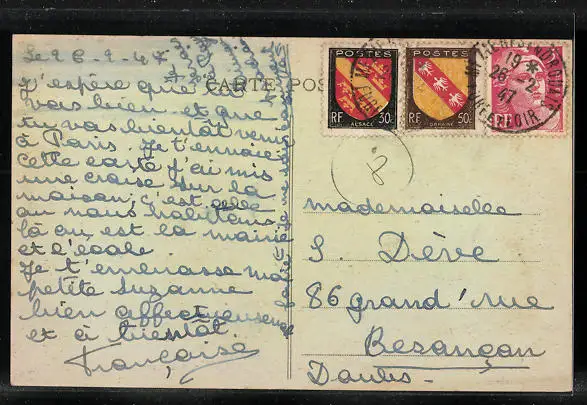 Le 26-2-47
J'espère que tu
vas bien et que
tu vas bientôt venir
à Paris. Je t'envoie
cette carte j'ai mis
une croise sur la
maison, c'est celle
ou nous habitons
là ou est la mairie
et l'école.
Je t'embrasse ma
petite Suzanne
bien affectueusement
et à bientôt.
Françoise
CARTE POS
POSTES
RF ALSACE 30c
POSTES
RF LORRAINE 50c
19 *
26-2
47
8
mademoiselle
S. Dève
86 grand'rue
Besançon
Doubs-